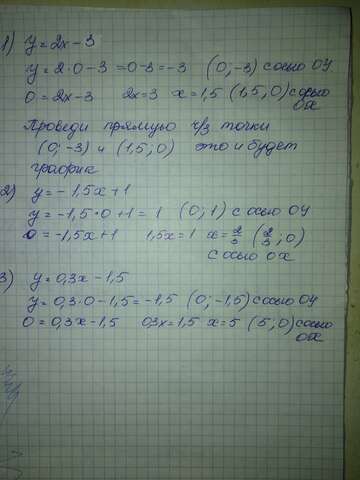 1) y=2x-3
y=2·0-3=0-3=-3 (0;-3) с осью ОУ
0=2x-3 2x=3 x=1,5 (1,5;0) с осью
ОХ
Проведи прямую ч/з точки
(0;-3) и (1,5;0) это и будет
график
2) y=-1,5x+1
y=-1,5·0+1=1 (0;1) с осью ОУ
0=-1,5x+1 1,5x=1 x=2/3 (2/3;0)
с осью ОХ
3) y=0,3x-1,5
y=0,3·0-1,5=-1,5 (0;-1,5) с осью ОУ
0=0,3x-1,5 0,3x=1,5 x=5 (5;0) с осью
ОХ